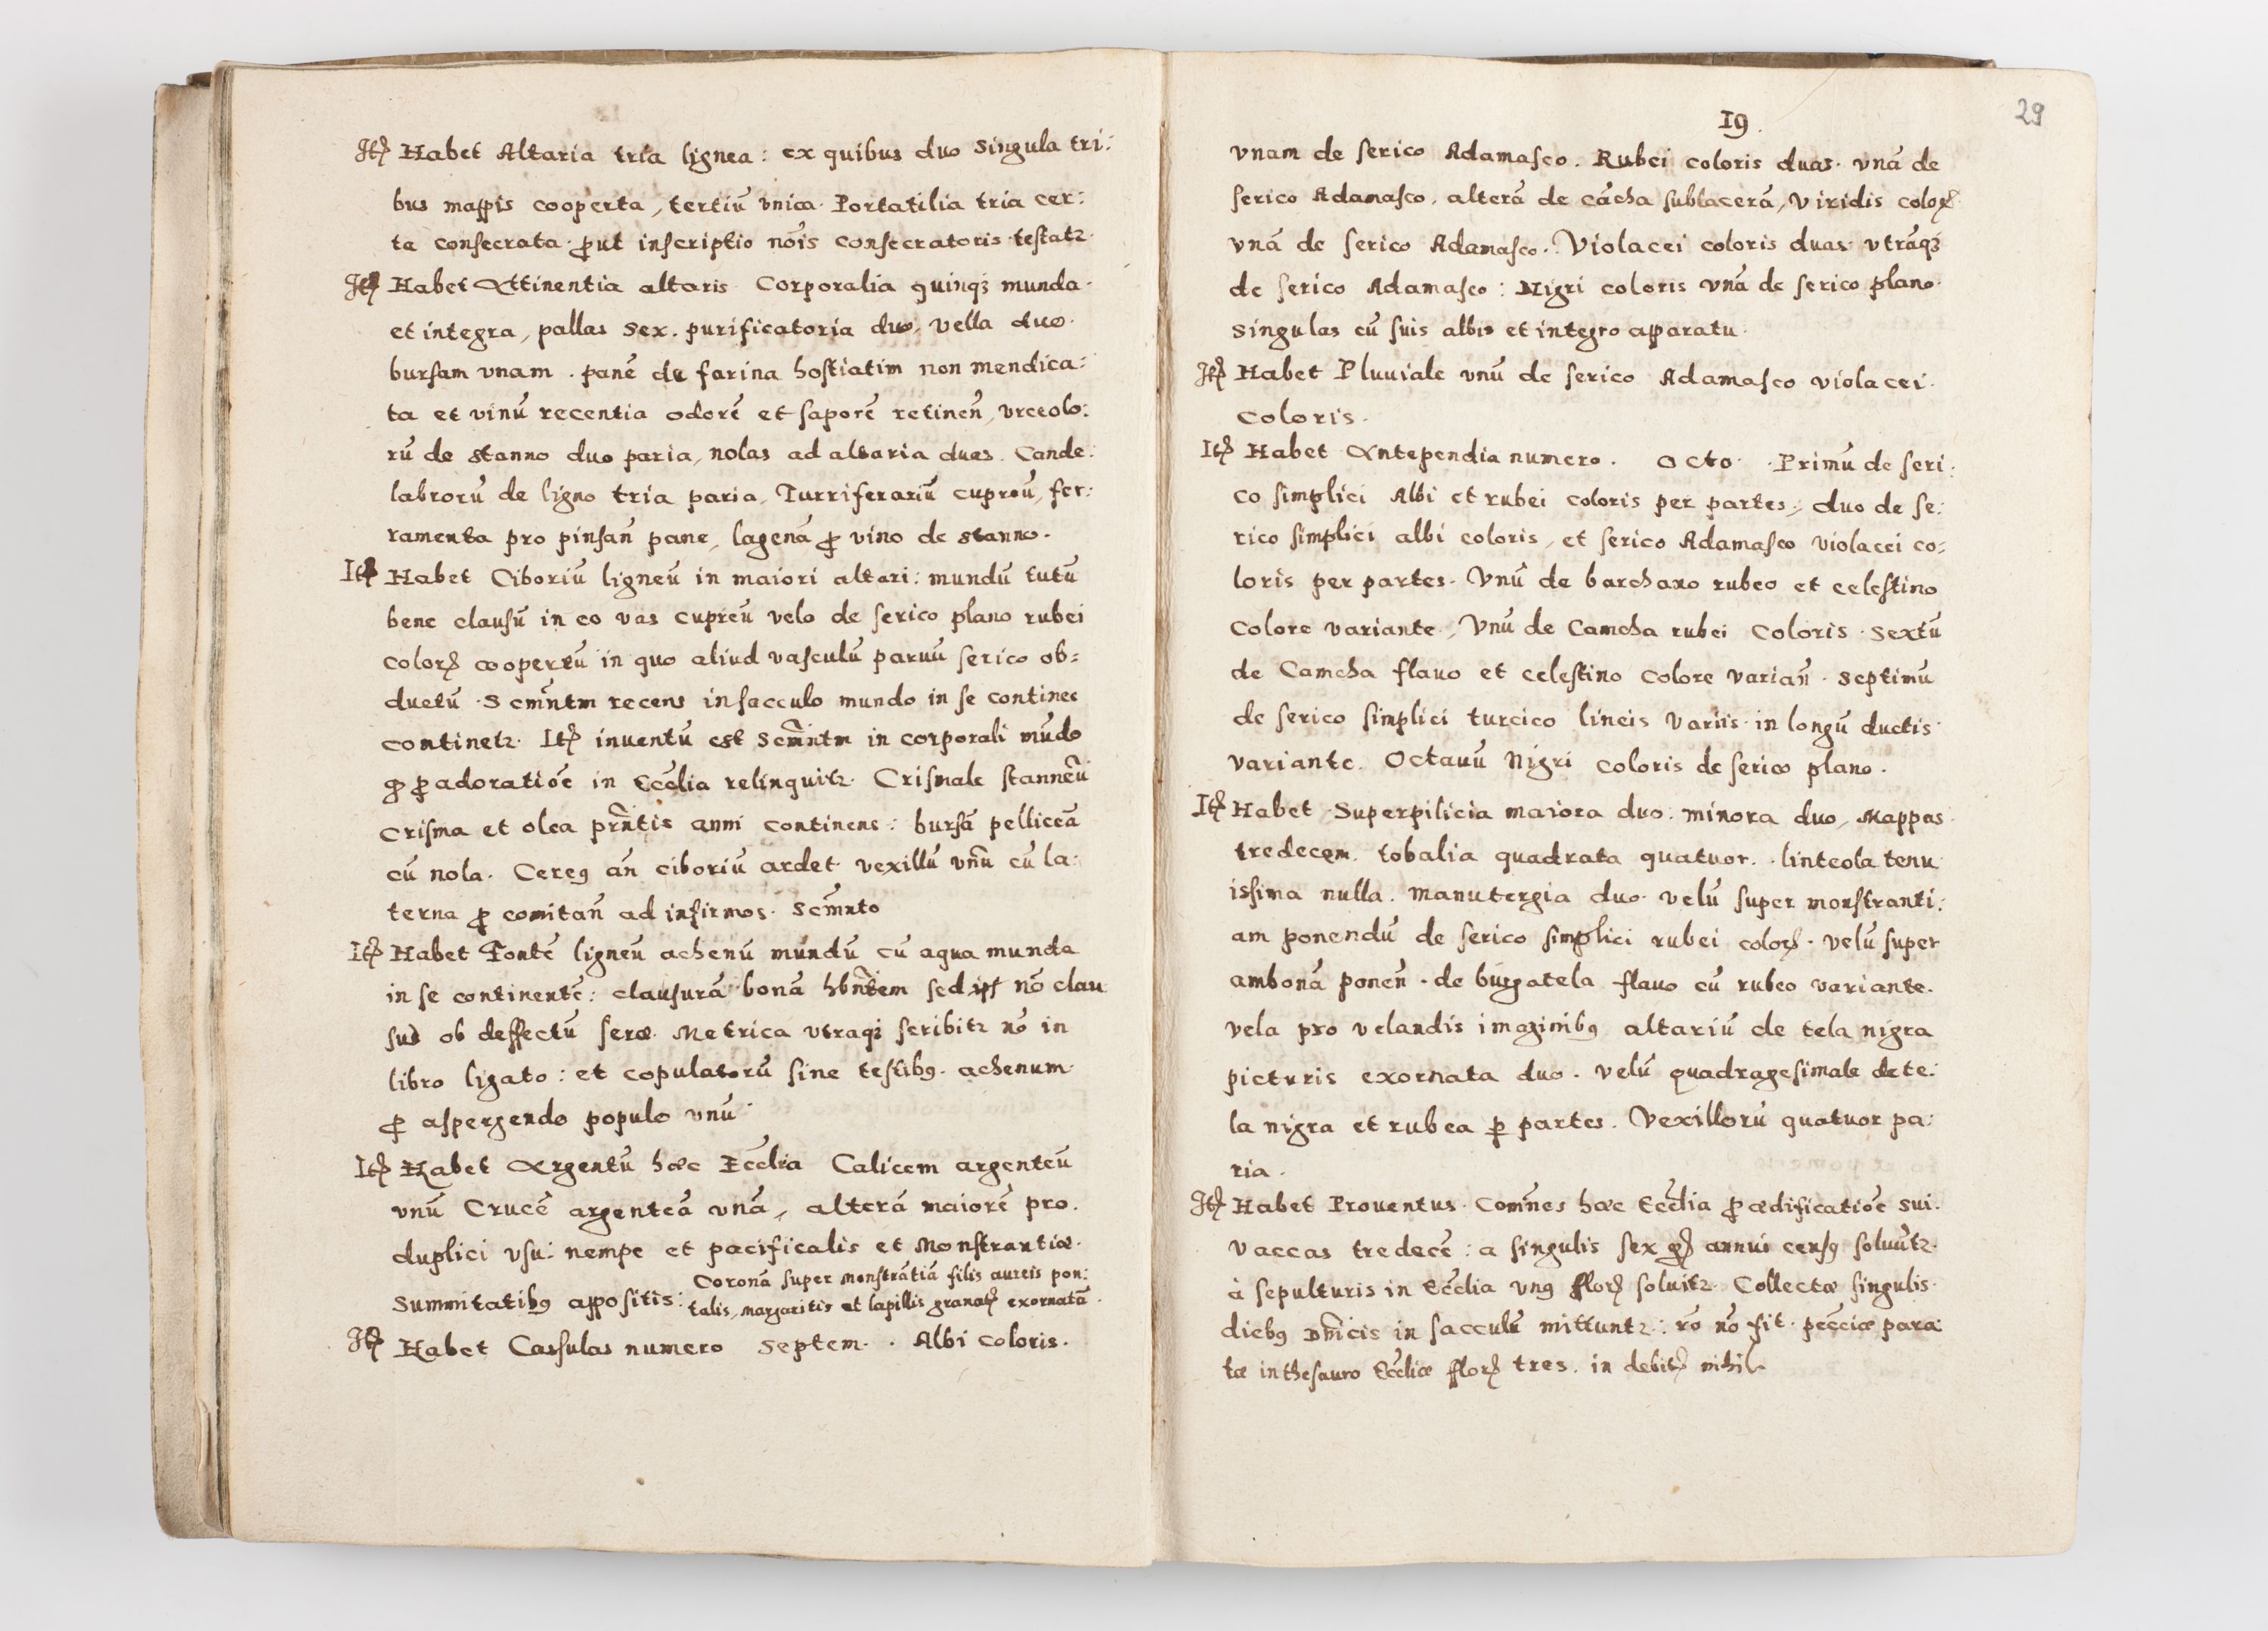 Itē Habet Altaria tria lignea : ex quibus duo singula tri:
bus mappis cooperta, tertiū vnica. Portatilia tria cer:
ta consecrata. ꝓut inscriptio nōis consecratoris testatr.
Itē Habet Attinentia altaris Corporalia quinqꝫ munda.
et integra, pallas sex. purificatoria duo, vella duo.
bursam vnam. panē de farina hostiatim non mendica:
ta et vinū recentia odorē et saporē retinen̄, vrceolo:
rū de stanno duo paria, nolas ad altaria duas. Cande:
labrorū de ligno tria paria, Turriferariū cupreū, fer:
ramenta pro pinsan̄ pane, lagenā ꝓ vino de stanno.
Itē Habet Ciboriū ligneū in maiori altari : mundū tutū
bene clausū in eo vas cupreū velo de serico plano rubei
colorꝭ coopertū in quo aliud vasculū paruū serico ob=
ductū. Scm̄ntm recens in sacculo mundo in se continet
continetr. Itē inuentū est Scm̄ntm in corporali mūdo
ꝙ ꝓ adoratiōe in Eccɫia relinquitr. Crismale stanneū
Crisma et olea prn̄tis anni continens : bursā pelliceā
cū nola. Cereꝰ an̄ ciboriū ardet vexillū vnū cū la:
terna ꝓ comitan̄ ad infirmos. Scm̄nto
Itē Habet Fontē ligneū achenū mundū cū aqua munda
in se continentē : clausurā bonā hbn̄tem sed nō clau
sus ob deffectū seræ. Metrica vtraqꝫ scribitr nō in
libro ligato : et copulatorū sine testibꝰ. achenum
ꝓ aspergendo populo vnū.
Itē Habet Argentū hæc Eccɫia Calicem argenteū
vnū Crucē argenteā vnā, alterā maiorē pro.
duplici vsu: nempe et pacificalis et Monstrantiæ.
Summitatibꝰ appositis: Coronā super monstrātiā filis aureis pon:
talis, margaritis et lapillis granatꝭ exornatā.
Itē Habet Cassulas numero septem. . Albi coloris.
19.
29
vnam de serico Adamasco. Rubei coloris duas. vnā de
serico Adamasco. alterā de cācha sublacerā, Viridis colorꝭ
vnā de serico Adamasco. Violacei coloris duas. vtrāqꝫ
de serico Adamasco : Nigri coloris vnā de serico plano.
Singulas cū suis albis et integro apparatu.
Itē Habet Pluuiale vnū de serico Adamasco violacei.
Coloris.
Itē Habet Antependia numero. Octo. . Primū de seri:
co simplici Albi et rubei coloris per partes, duo de se:
rico simplici albi coloris, et serico Adamasco violacei co=
loris per partes. Vnū de barchano rubeo et celestino
Colore variante, Vnū de Camcha rubei Coloris. Sextū
de Camcha flauo et celestino Colore varian̄. Septimū
de serico simplici turcico lineis variis in longū ductis
variante. Octauū Nigri coloris de serico plano.
Itē Habet Superpilicia maiora duo. minora duo, Mappas.
tredecem. tobalia quadrata quatuor. . linteola tenu
issima nulla. manutergia duo. velū super monstranti:
am ponendū de serico simplici rubei colorꝭ. velū super
ambonā ponen̄. de burgatela flauo cū rubeo variante.
Vela pro velandis imaginibꝰ altariū de tela nigra
picturis exornata duo. velū quadragesimale de te:
la nigra et rubea ꝑ partes. Vexillorū quatuor pa:
ria.
Itē Habet Prouentus. Com̄nes hæc Eccɫia ꝓ ædificatiōe sui.
Vaccas tredecē : a singulis sex gꝭ annui censꝰ soluūtr.
à sepulturis in Eccɫia vnꝰ fflorꝭ soluitr. Collectæ singulis.
diebꝰ Dn̄icis in sacculū mittuntr : rō nō fit. pecc̄iæ para
tæ in thesauro Eccɫiæ fflorꝭ tres. in debitꝭ nihil.